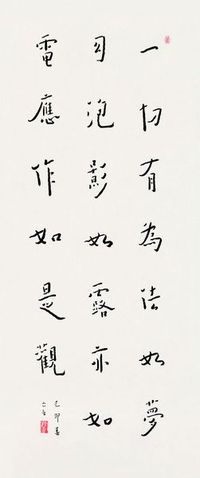 一切有為法如夢
幻泡影如露亦如
電應作如是觀
卯春